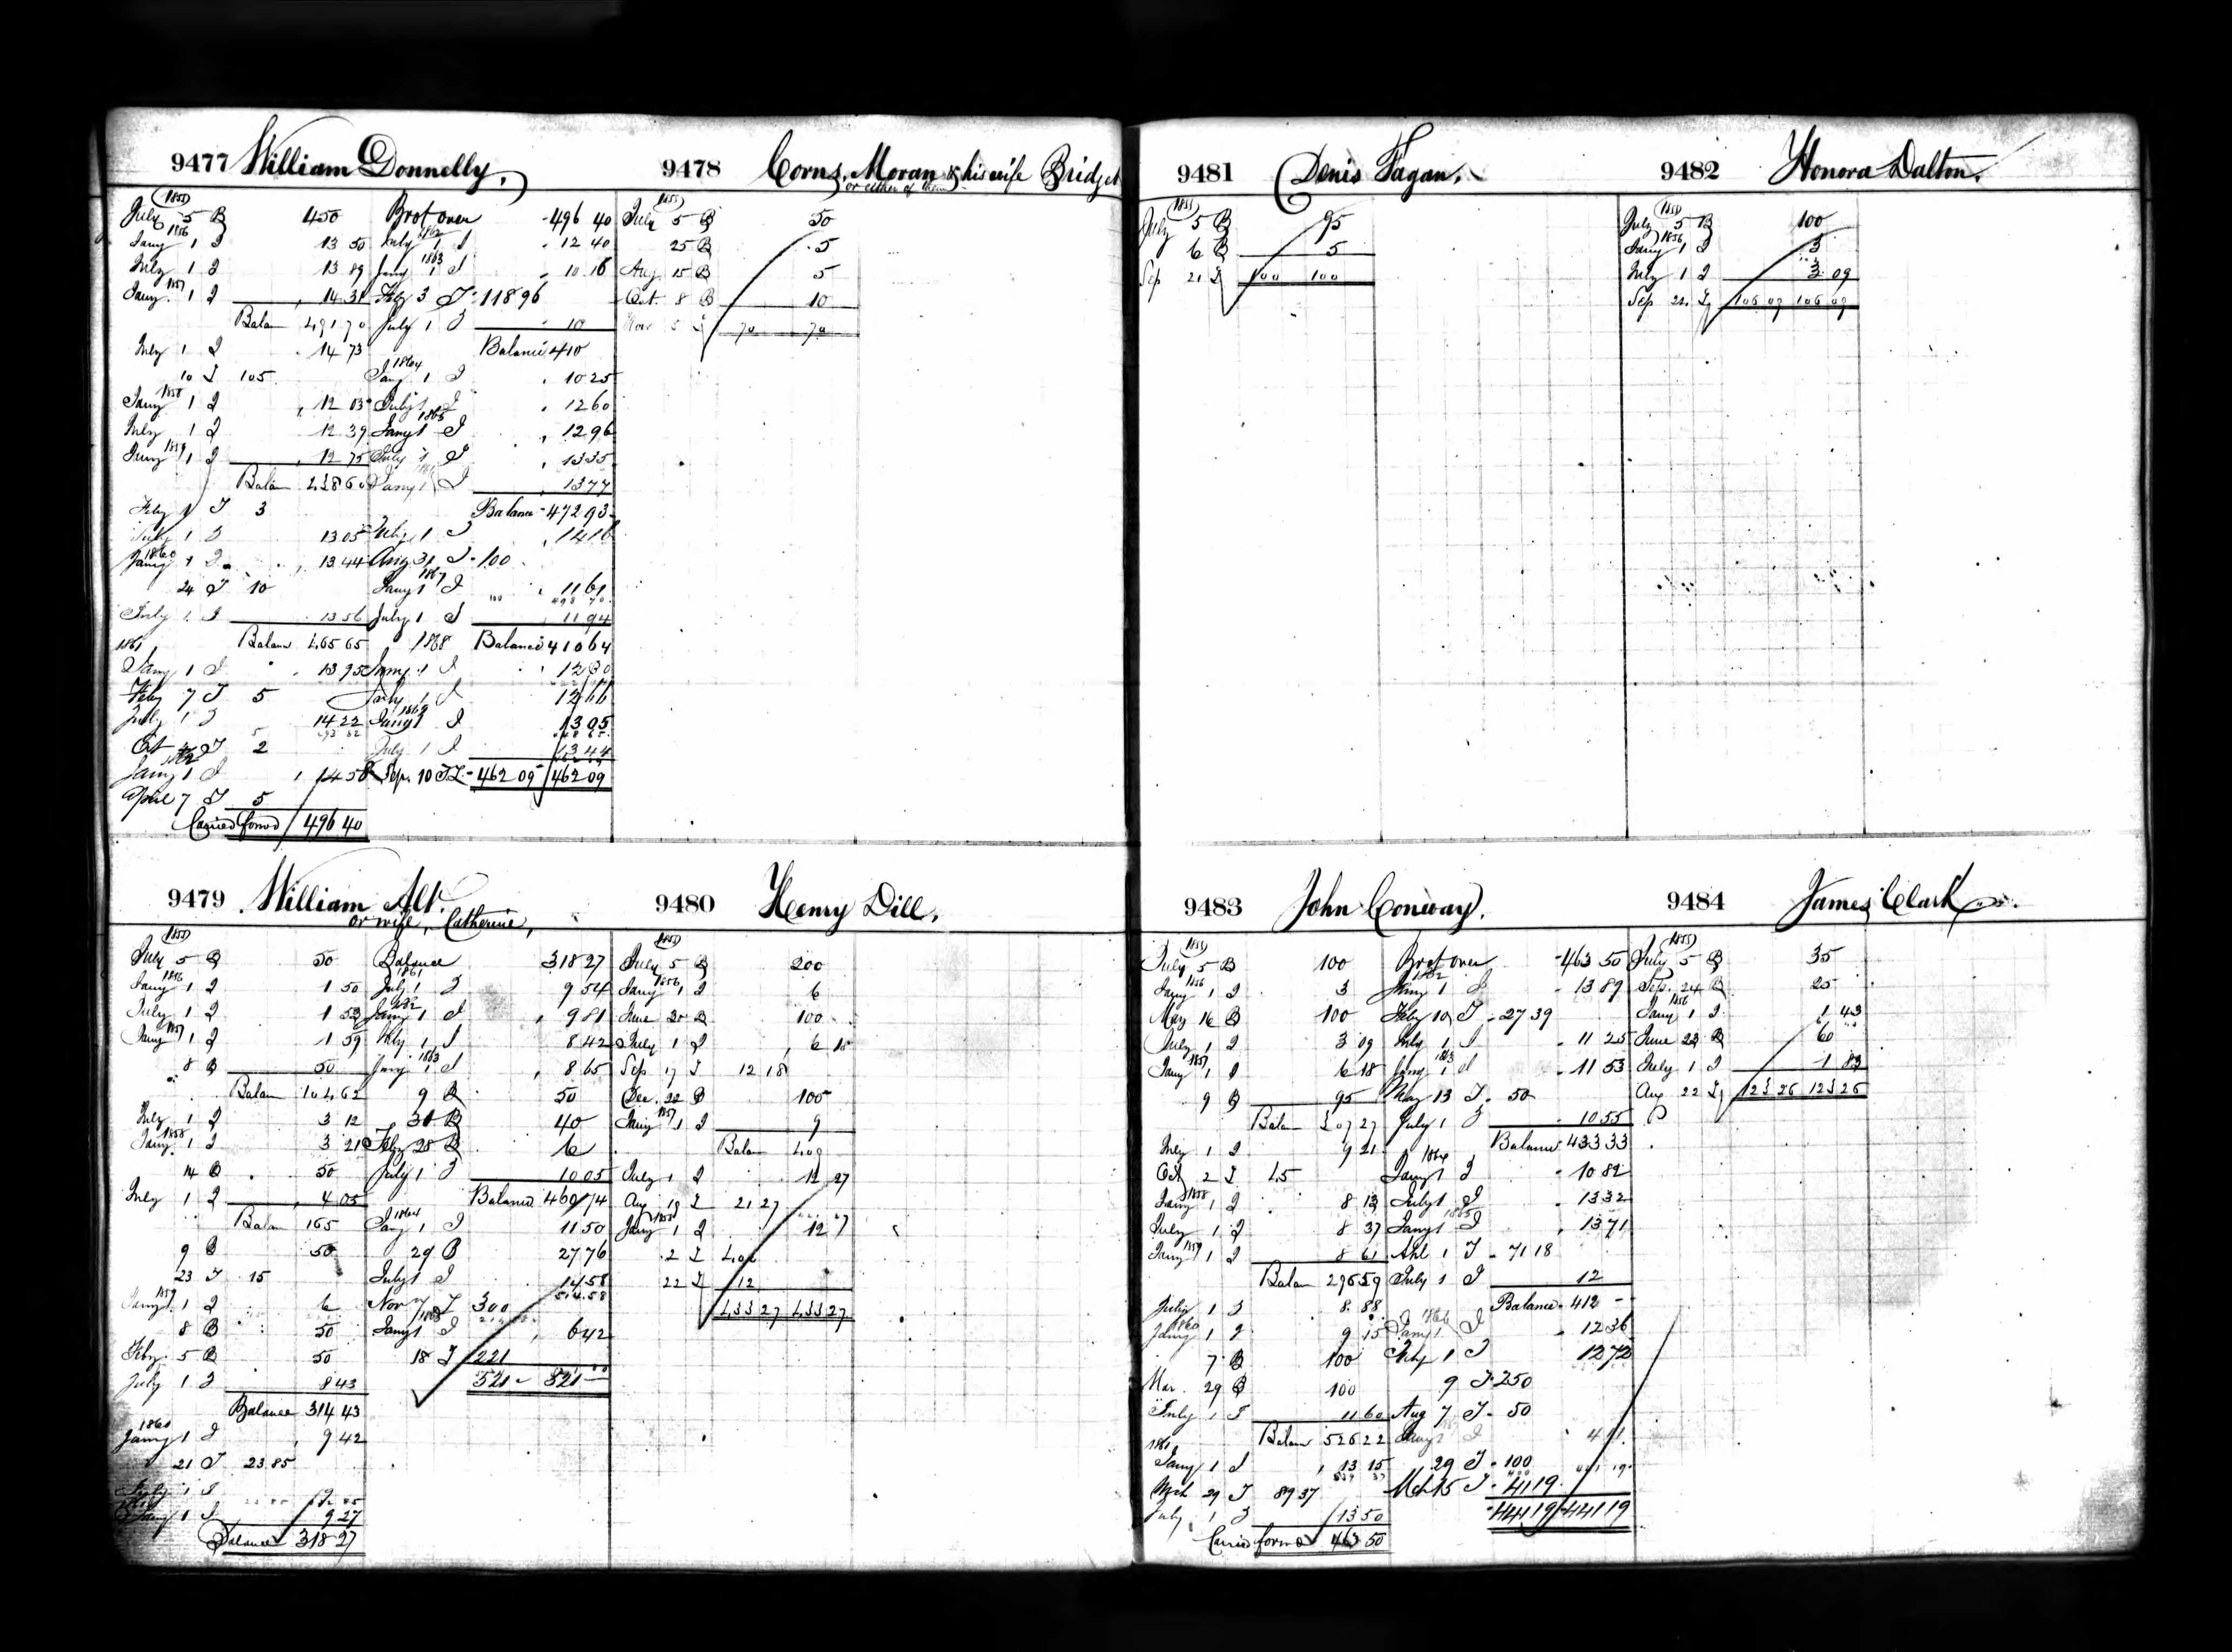 9477 William Donnelly.
1855
July 5 B 450
1856
Jany 1 I 13 50
July 1 I 13 89
1857
Jany 1 I 14 31
Balan 491 70
July 1 I 14 73
10 T 105
1858
Jany 1 I 12 03
July 1 I 12 39
1859
Jany 1 I 12 75
Balan 438 60
Feby 1 T 3
July 1 I 13 05
1860
Jany 1 I 13 44
24 T 10
July 1 I 13 56
Balan 465 65
1861
Jany 1 I 13 95
Feby 7 T 5
July 1 I 14 22
Oct T 2
1862
Jany 1 I 14 58
April 7 T 5
Carried forwd 496 40
Brot over 496 40
1862
July 1 I 12 40
1863
Jany 1 I 10 16
Feby 3 T 118 96
July 1 I 10
Balance 410
1864
Jany 1 I 10 25
July 1 I 12 60
1865
Jany 1 I 12 96
July 1 I 13 35
Jany 1 I 13 77
Balance 472 93
July 1 I 14 16
Aug 31 T 100
1867
Jany 1 I 11 61
July 1 I 11 94
Balance 410 64
1868
Jany 1 I 12 30
July 1 I 12 66
1869
Jany 1 I 13 05
July 1 I 13 44
Sep. 10 T 462 09 462 09
9478 Corns. Moran & his wife Bridget
or either of them
1855
July 5 B 50
25 B 5
Aug 15 B 5
Oct 8 B 10
Nov 5 70 70
9481 Denis Fagan.
1855
July 5 B 95
6 B 5
Sep 21 100 100
9482 Honora Dalton.
1855
July 5 B 100
1856
Jany 1 I 3
July 1 I 3 09
Sep 22 106 09 106 09
9479 William Alt.
or wife, Catherine,
1855
July 5 B 50
1856
Jany 1 I 1 50
July 1 I 1 53
1857
Jany 1 I 1 59
8 B 50
Balan 104 62
July 1 I 3 12
1858
Jany 1 I 3 21
14 B 50
July 1 I 4 05
Balan 165
9 B 50
23 T 15
1859
Jany 1 I 6
8 B 50
Feby. 5 B 50
July 1 I 8 43
Balance 314 43
1860
Jany 1 I 9 42
21 T 23 85
July 1 I
Jany 1 I 9 27
Balance 318 27
Balance 318 27
1861
July 1 I 9 54
1862
Jany 1 I 9 81
July 1 I 8 42
1863
Jany 1 I 8 65
9 B 50
30 B 40
Feby 28 B 6
July 1 I 10 05
Balance 460 74
1864
Jany 1 I 11 50
29 B 27 76
July 1 I 14 58
514 58
Nov 7 T 300
1865
Jany 1 I 6 42
18 T 221
521 521
9480 Henry Dill.
1855
July 5 B 200
1856
Jany 1 I 6
June 20 B 100
July 1 I 6 18
Sep 17 T 12 18
Dec. 22 B 100
1857
Jany 1 I 9
Balan 409
July 1 I 12 27
Aug 19 T 21 27
1858
Jany 1 I 12
2 T 400
22 T 12
433 27 433 27
9483 John Conway.
1855
July 5 B 100
1856
Jany 1 I 3
May 16 B 100
July 1 I 3 09
1857
Jany 1 I 6 18
9 B 95
Balan 307 27
July 1 I 9 21
Oct 2 T 45
1858
Jany 1 I 8 13
July 1 I 8 37
1859
Jany 1 I 8 61
Balan 296 59
July 1 I 8 88
1860
Jany 1 I 9 15
7 B 100
Mar. 29 B 100
July 1 I 11 60
Balan 526 22
1861
Jany 1 I 13 15
Mch 29 T 89 37
July 1 I 13 50
Carried forwd 463 50
Brot over 463 50
1862
Jany 1 I 13 89
Feby 10 T 27 39
July 1 I 11 25
1863
Jany 1 I 11 53
May 13 T 50
July 1 I 10 55
Balance 433 33
1864
Jany 1 I 10 82
July 1 I 13 32
1865
Jany 1 I 13 71
Apl 1 T 71 18
July 1 I 12
Balance 412
1866
Jany 1 I 12 36
July 1 I 12 72
9 T 250
Aug 7 T 50
Jany 1 I 4 11
29 T 100
Mch 15 T 41 19
441 19 441 19
9484 James Clark
1855
July 5 B 35
Sep. 24 B 25
1856
Jany 1 I 1 43
June 23 B 60
July 1 I 1 83
Aug 22 123 26 123 26